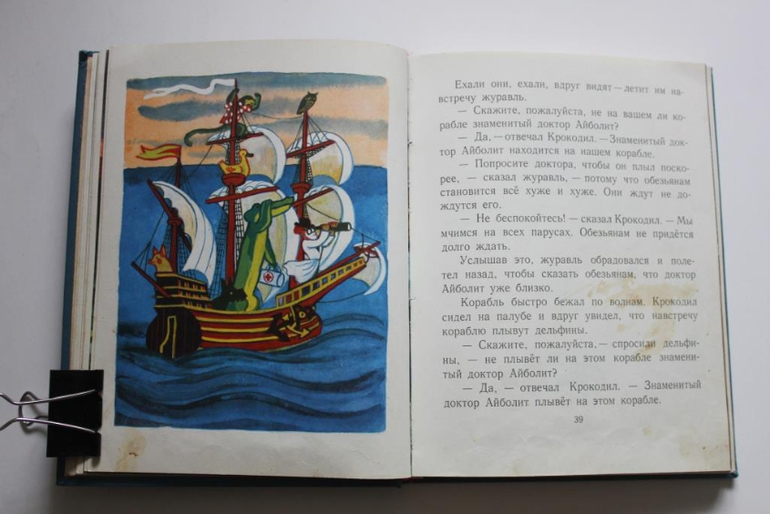 Ехали они, ехали, вдруг видят — летит им на-
встречу журавль.
— Скажите, пожалуйста, не на вашем ли ко-
рабле знаменитый доктор Айболит?
— Да, — отвечал Крокодил. — Знаменитый док-
тор Айболит находится на нашем корабле.
— Попросите доктора, чтобы он плыл поско-
рее, — сказал журавль, — потому что обезьянам
становится всё хуже и хуже. Они ждут не до-
ждутся его.
— Не беспокойтесь! — сказал Крокодил. — Мы
мчимся на всех парусах. Обезьянам не придётся
долго ждать.
Услышав это, журавль обрадовался и поле-
тел назад, чтобы сказать обезьянам, что доктор
Айболит уже близко.
Корабль быстро бежал по волнам. Крокодил
сидел на палубе и вдруг увидел, что навстречу
кораблю плывут дельфины.
— Скажите, пожалуйста, — спросили дельфи-
ны, — не плывёт ли на этом корабле знамени-
тый доктор Айболит?
— Да, — отвечал Крокодил. — Знаменитый
доктор Айболит плывёт на этом корабле.
39